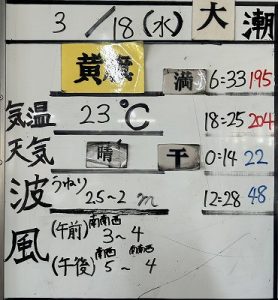 3/18(水) 大潮
黄旗 満 6:33 195
気温 23℃ 18:25 204
天気 晴 干 0:14 22
波 うねり 2.5~2 m 12:28 48
風 (午前) 南南西 3~4
(午後) 南西 5~ 南南西 4